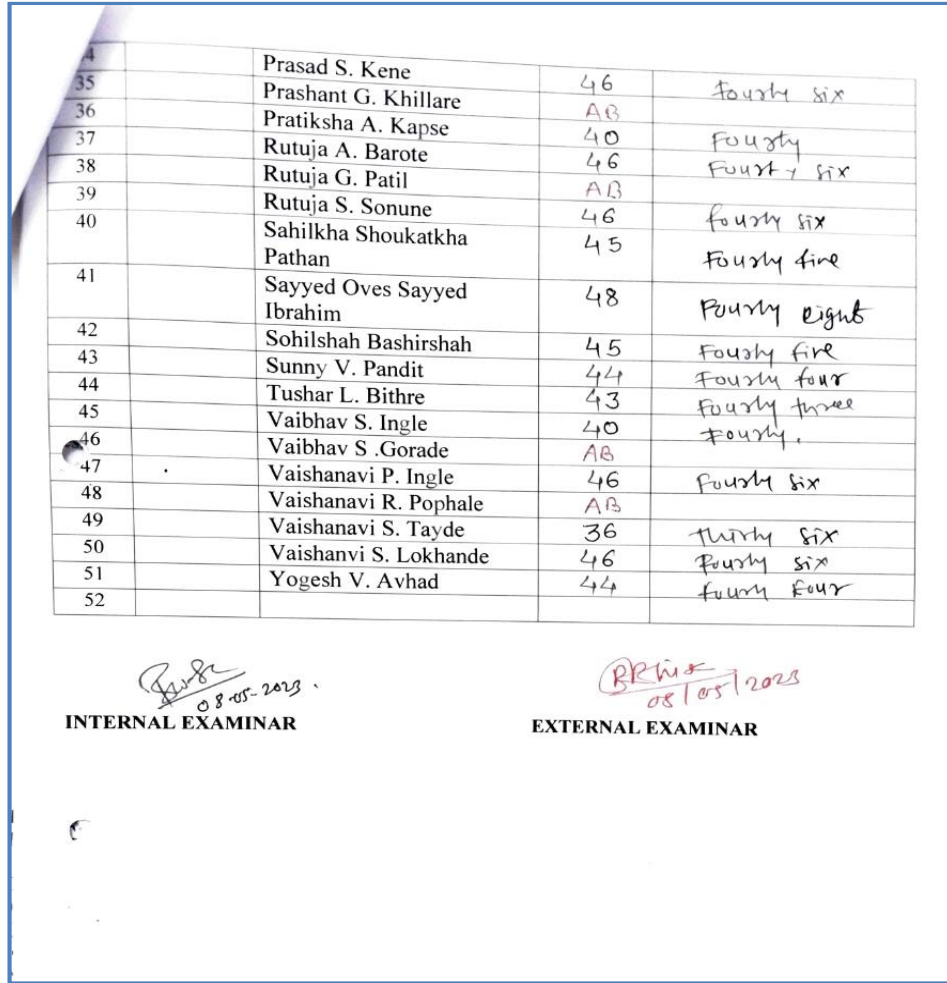 4 Prasad S. Kene 46 Fourty six
35 Prashant G. Khillare AB
36 Pratiksha A. Kapse 40 Fourty
37 Rutuja A. Barote 46 Fourty six
38 Rutuja G. Patil AB
39 Rutuja S. Sonune 46 fourty six
40 Sahilkha Shoukatkha 45 Fourty five
Pathan
41 Sayyed Oves Sayyed 48 Fourty eight
Ibrahim
42 Sohilshah Bashirshah 45 Fourty five
43 Sunny V. Pandit 44 Fourty four
44 Tushar L. Bithre 43 Fourty three
45 Vaibhav S. Ingle 40 Fourty.
46 Vaibhav S .Gorade AB
47 Vaishanavi P. Ingle 46 Fourty six
48 Vaishanavi R. Pophale AB
49 Vaishanavi S. Tayde 36 thirty six
50 Vaishanvi S. Lokhande 46 Fourty six
51 Yogesh V. Avhad 44 fourty Four
52
08-05-2023. 08/05/2023
INTERNAL EXAMINAR EXTERNAL EXAMINAR